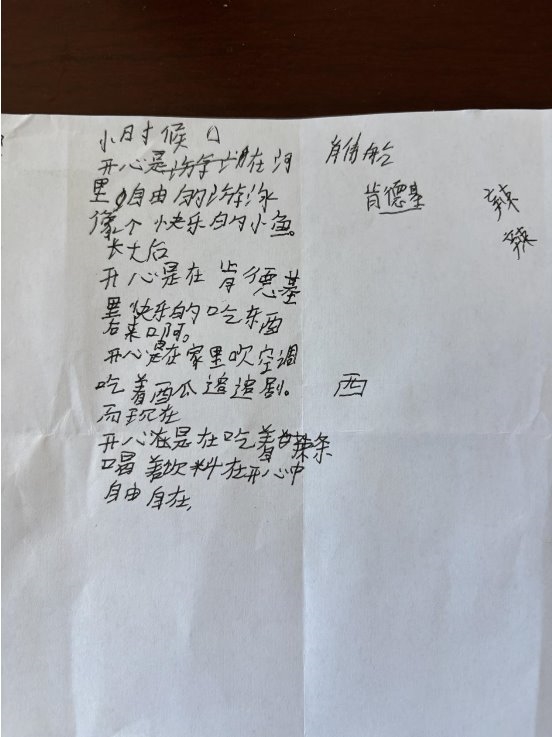 小时候
开心是在河
里自由的游泳
像个快乐的小鱼。
长大后
开心是在肯德基
里快乐的吃东西
后来啊。
开心是在家里吹空调
吃着西瓜追追剧。
而现在
开心是在吃着辣条
喝着饮料在开心中
自由自在,
肯德基
辣
辣
西